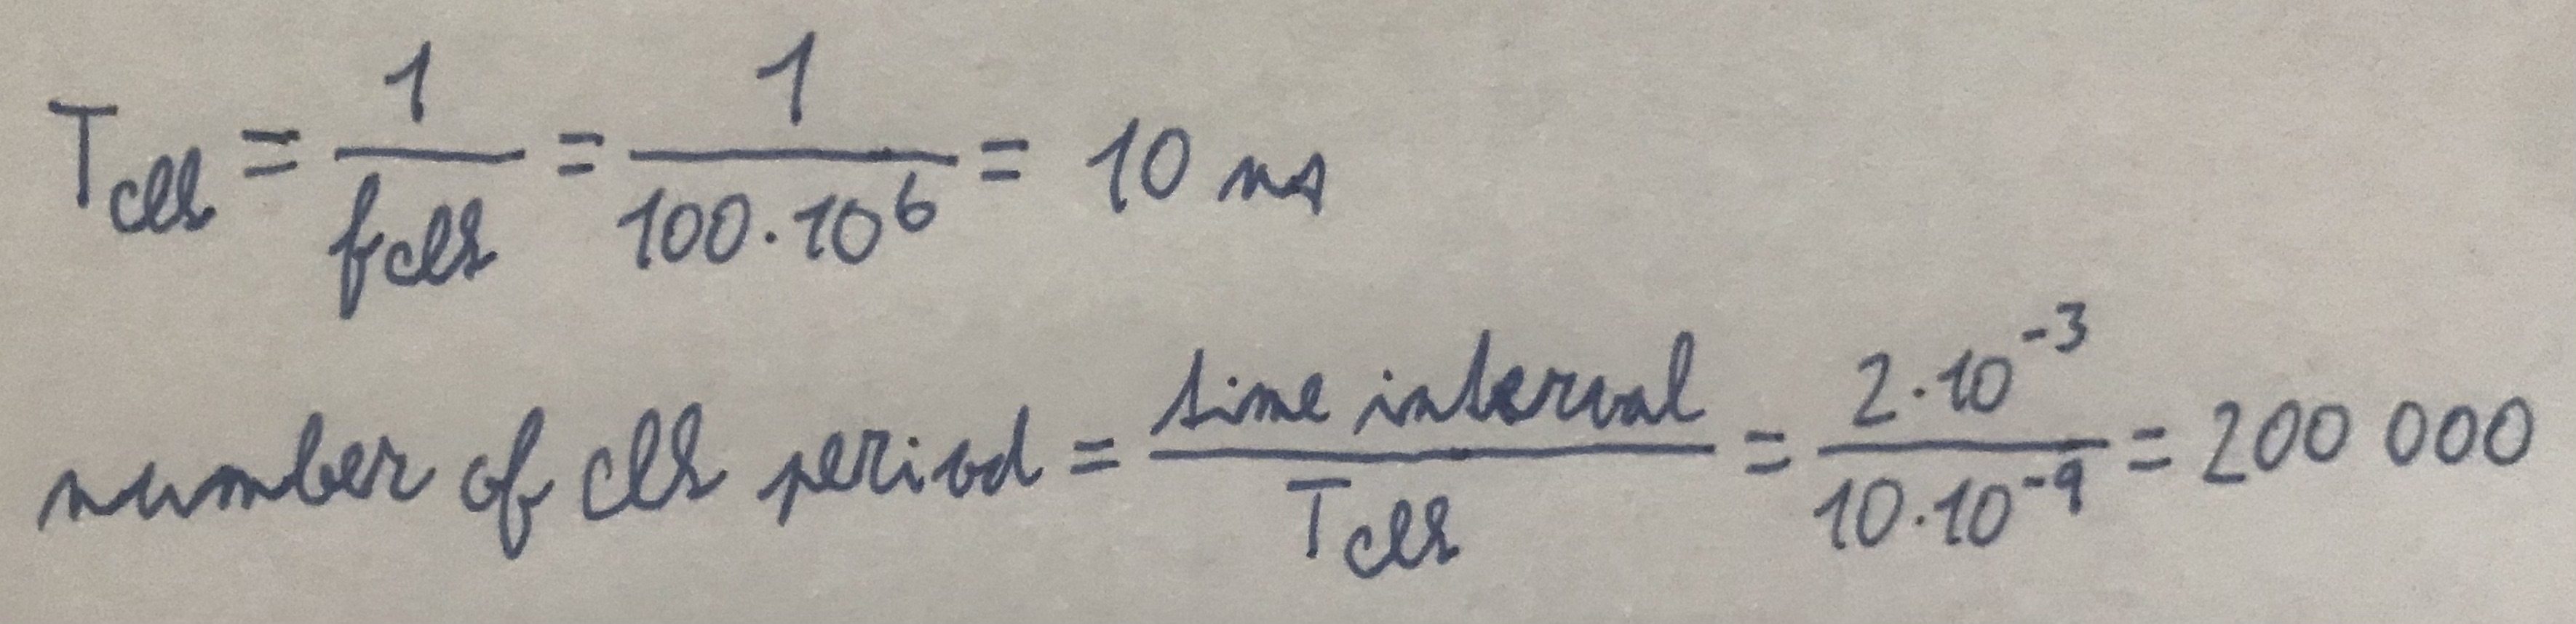 T_clk = 1/f_clk = 1/(100·10^6) = 10 ns
number of clk period = time interval/T_clk = (2·10^-3)/(10·10^-9) = 200 000